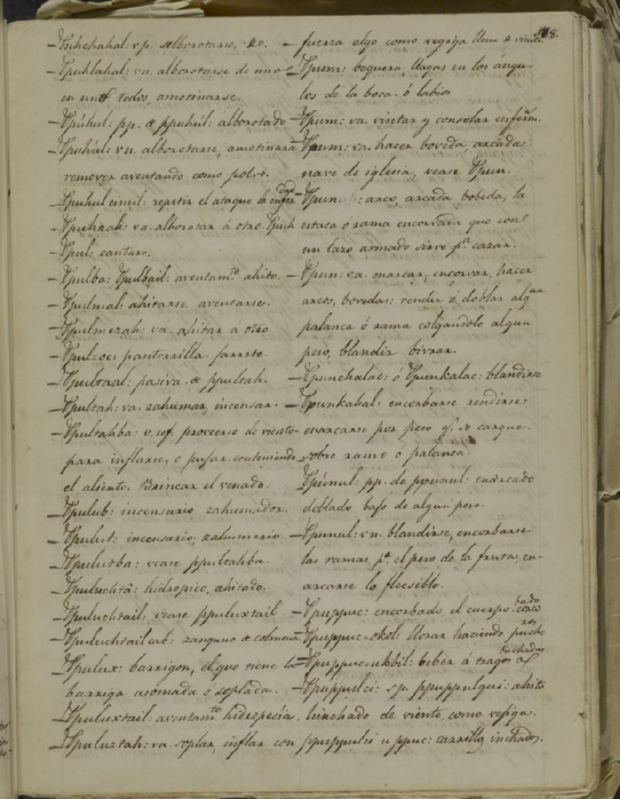 168.
– Ppuhchahal: v.p. alborotarse, &c.
– Ppuhlahal: vn. alborotarse de uno
en uno todos, amotinarse.
– Ppúhul: pp. de ppuhúl: alborotado
– Ppuhúl: vn. alborotarse, amotinarse
remover aventando como polvo.
– Ppuhul cimil: repetir el ataque la enfer
– Ppuhzah: va. alborotar á otro. Ppuh
– Ppul: cantaro.
– Ppulba: Ppulbail: aventamto ahito.
– Ppulmal: ahitarse aventarse.
– Ppulmezah: va. ahitar a otro
– Ppul=oc: pantorrilla
– Ppultaal: pasiva de ppultah.
– Ppultah: va. zahumar, incensar.
– Ppultahba: v. ref. proveerse de viento
para inflarse, o pujar conteniendo
el aliento. Brincar el venado.
– Ppulub: incensario zahumador.
– Ppulut: incensario, zahumerio
– Ppulutba: vease ppultahba.
– Ppuluchtá: hidropico, ahitado.
– Ppuluchtail: vease ppuluxtail
– Ppuluchtailcab: zangano de colmena
– Ppulux: barrigon, el que tiene la
barriga asomada o soplada.
– Ppuluxtail: aventamto hidropecía.
– Ppuluztah: va. soplar, inflar con
fuerza algo como vegiga llena de viento.
– Ppum: boquera, llagas en los ángu-
los de la boca. ó labios
– Ppum: va. visitar y consolar enferm.
– Ppum: va. hacer boveda, arcadas
nave de iglesia, vease Ppun.
– Ppun: arco, arcada bobeda, la
estaca ó rama encorvada que con
un lazo armado sirve pa. cazar.
– Ppun: va. enarcar, encorvar, hacer
arcos, bovedas: rendir ó doblar algna
palanca ó rama colgandole algun
peso, blandir
– Ppunchalac: ó Ppunkalac: blandirse
– Ppunkahal: encorbarse rendirse
enarcarse por peso qe. se cargue
sobre rama o palanca
– Ppúnul: pp. de ppunúl enarcado
doblado bajo de algun peso.
– Ppunul: vn. blandirse, encorbarse
las ramas pr. el peso de la fruta, en-
arcarse lo flecsible.
– Ppuppuc: encorbado el cuerpo.
– Ppuppuc=okol: llorar haciendo puche
ros
– Ppuppuc=ukbil: beber á tragos
– Ppuppulci: s.p. ppuppulqui: ahito
hinchado de viento, como vegiga.
ppuppulci u ppuc: carrillos inchados.